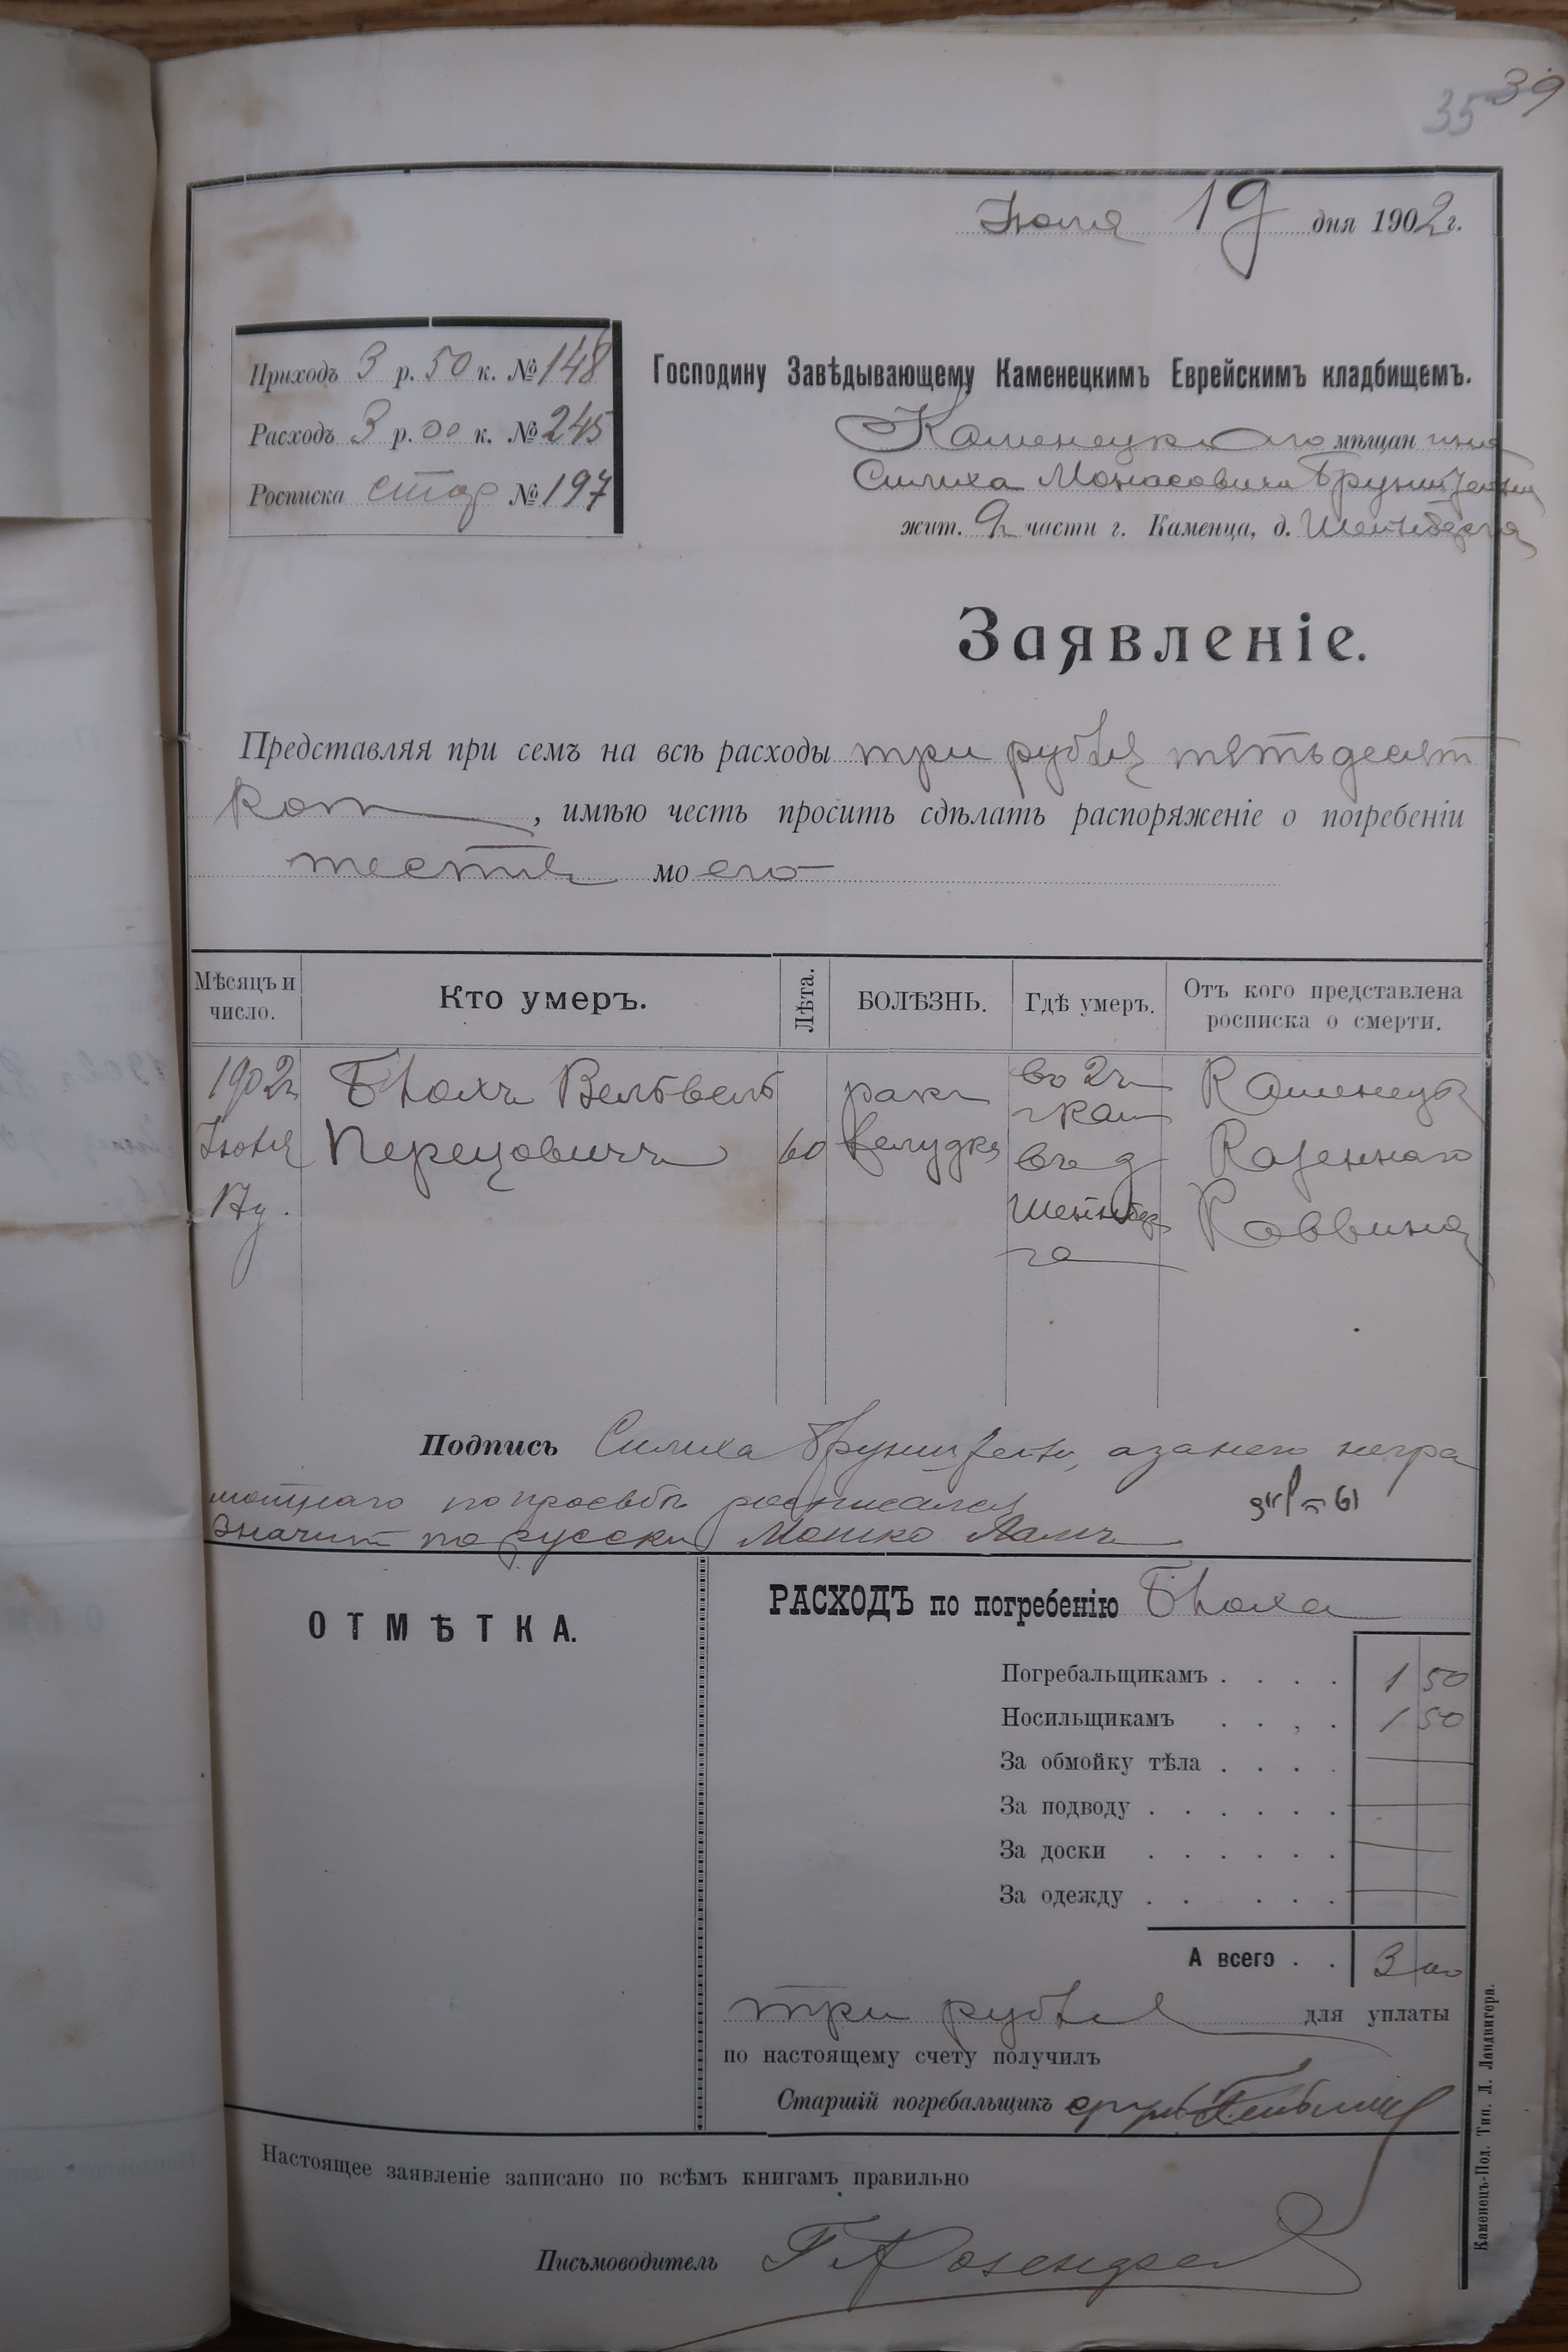 35 39
Июля 19 дня 1902 г.
Приходъ 3 р. 50 к. № 148
Расходъ 3 р. 00 к. № 245
Росписка стар № 197
Господину Завѣдывающему Каменецкимъ Еврейскимъ кладбищемъ.
Каменецкаго мѣщанина
Силиха Монасовича
жит. 2 части г. Каменца, д. Шейнберга
Заявленіе.
Представляя при семъ на всѣ расходы три рубля пятьдесят
коп, имѣю честь просить сдѣлать распоряженіе о погребеніи
тестя моего
Мѣсяцъ и число.
Кто умеръ.
Лѣта.
БОЛѢЗНЬ.
Гдѣ умеръ.
Отъ кого представлена росписка о смерти.
1902 г
17 д.
Вельвель
Перецовичъ
60
ракъ
желудка
во 2 ч
г Кам
въ д
Шейнбер
га
Каменецк
Казеннаго
Раввина
Подпись Силиха а за него негра
мотнаго по просьбѣ росписался
значит по русски Мошко
ОТМѢТКА.
РАСХОДЪ по погребенію
Погребальщикамъ . . . . 1 50
Носильщикамъ . . , . 1 50
За обмойку тѣла . . . .
За подводу . . . . . .
За доски . . . . . .
За одежду . . . . .
А всего . . 3 00
три рубля для уплаты
по настоящему счету получилъ
Старшій погребальщикъ
Настоящее заявленіе записано по всѣмъ книгамъ правильно
Письмоводитель
Каменецъ-Под. Тип. Л. Ландвигера.